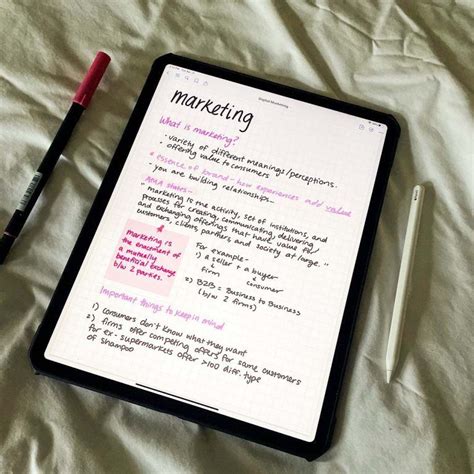 Digital Marketing
marketing
What is marketing?
• variety of different meanings/perceptions.
• offering value to consumers
* essence of brand - how experiences add value
• you are building relationships -
AMA states -
" marketing is the activity, set of institutions, and
process for creating, communicating, delivering
and exchanging offerings that have value for
customers, clients, partners, and society at large. "
marketing is
the enactment
of a mutually
beneficial exchange
b/w 2 parties.
For example -
1) a seller + a buyer
firm consumer
2) B2B = Business to Business
(b/w 2 firms)
Important things to keep in mind
1) consumers don't know what they want
2) firms offer competing offers for same customers
for ex - supermarkets offer >100 diff. type
of shampoo